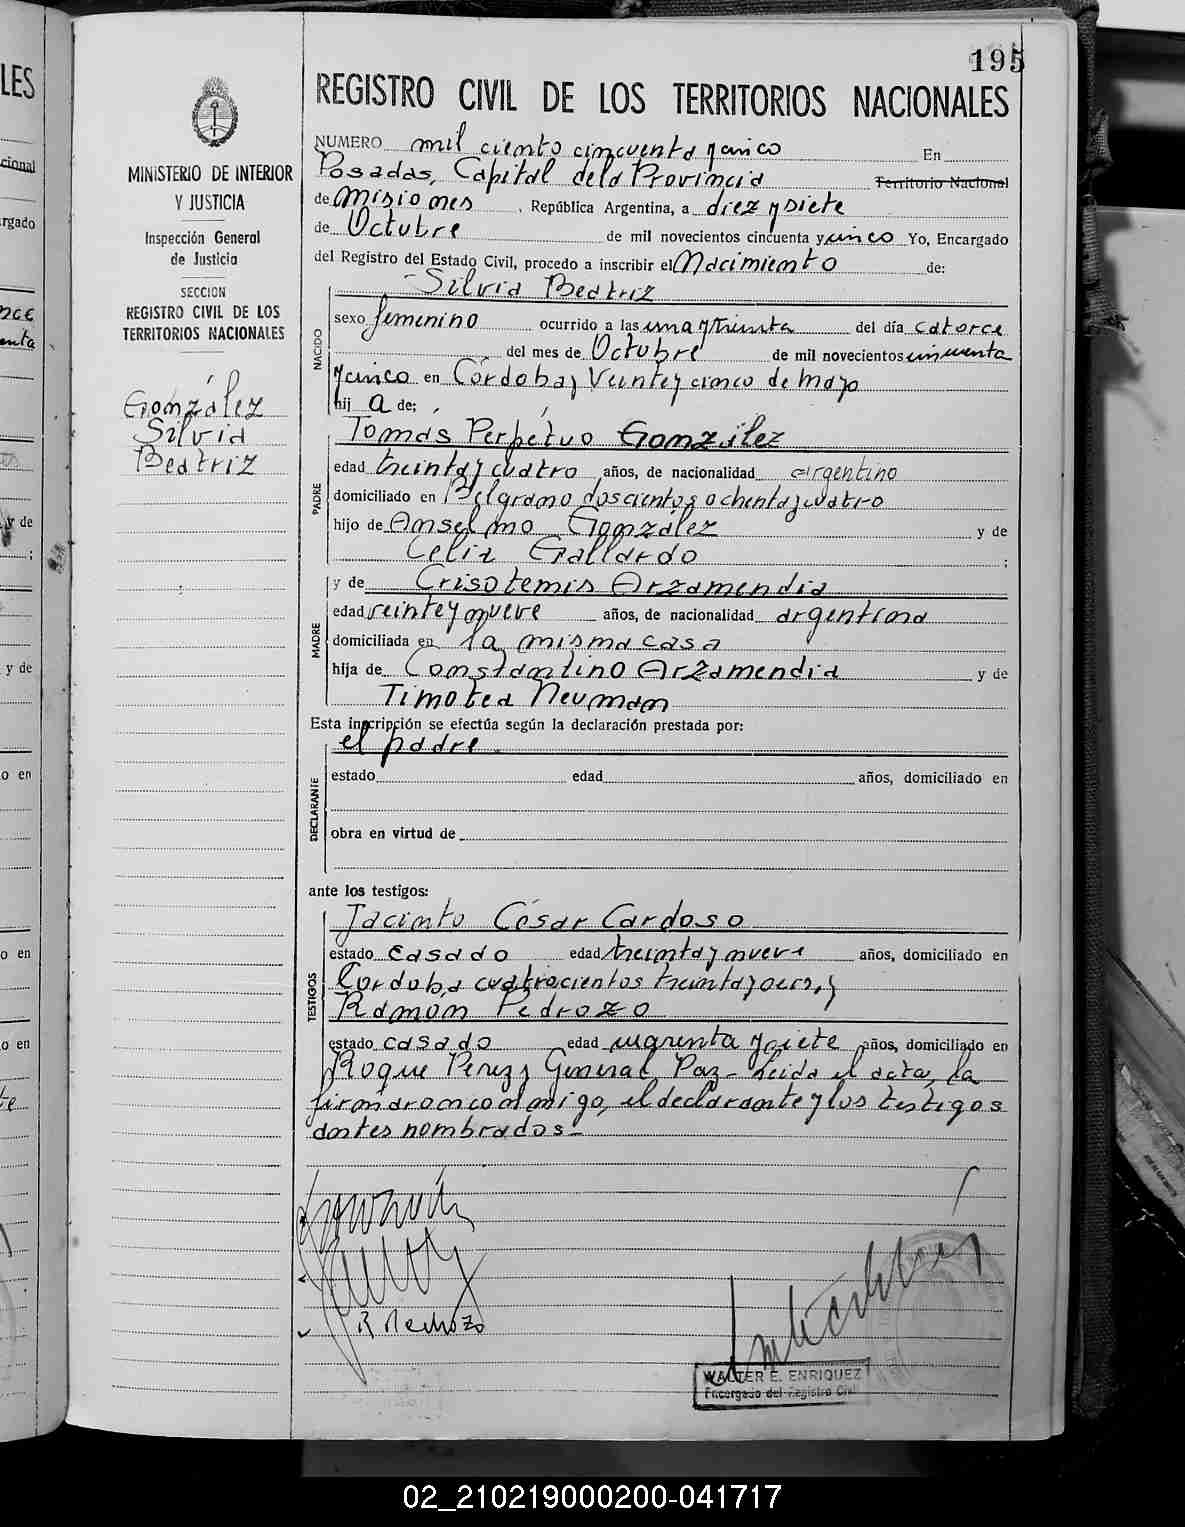 195
REGISTRO CIVIL DE LOS TERRITORIOS NACIONALES
MINISTERIO DE INTERIOR
Y JUSTICIA
Inspección General
de Justicia
SECCION
REGISTRO CIVIL DE LOS
TERRITORIOS NACIONALES
González
Silvia
Beatriz
NUMERO mil ciento cincuenta y cinco En
Posadas, Capital de la Provincia Territorio Nacional
de Misiones, República Argentina, a diez y siete
de Octubre de mil novecientos cincuenta y cinco Yo, Encargado
del Registro del Estado Civil, procedo a inscribir el Nacimiento de:
Silvia Beatriz
NACIDO
sexo femenino ocurrido a las una y treinta del día catorce
del mes de Octubre de mil novecientos cincuenta
y cinco en Córdoba y Veinte y cinco de Mayo
hij a de:
PADRE
Tomás Perpétuo González
edad treinta y cuatro años, de nacionalidad argentino
domiciliado en Belgrano doscientos ochenta y cuatro
hijo de Anselmo González y de
Celia Gallardo ;
MADRE
y de Crisotemis Arzamendia
edad veinte y nueve años, de nacionalidad argentina
domiciliada en la misma casa
hija de Constantino Arzamendia y de
Timotea Neuman
Esta inscripción se efectúa según la declaración prestada por:
DECLARANTE
el padre
estado edad años, domiciliado en
obra en virtud de
ante los testigos:
TESTIGOS
Jacinto César Cardoso
estado casado edad treinta y nueve años, domiciliado en
Cordoba cuatrocientos treinta y
Ramón Pedrozo
estado casado edad cuarenta y siete años, domiciliado en
Roque Pérez y General Paz - leida el acta, la
firmaron conmigo, el declarante y los testigos
antes nombrados.-
R Pedrozo
WALTER E. ENRIQUEZ
Encargado del Registro Civil
02_210219000200-041717